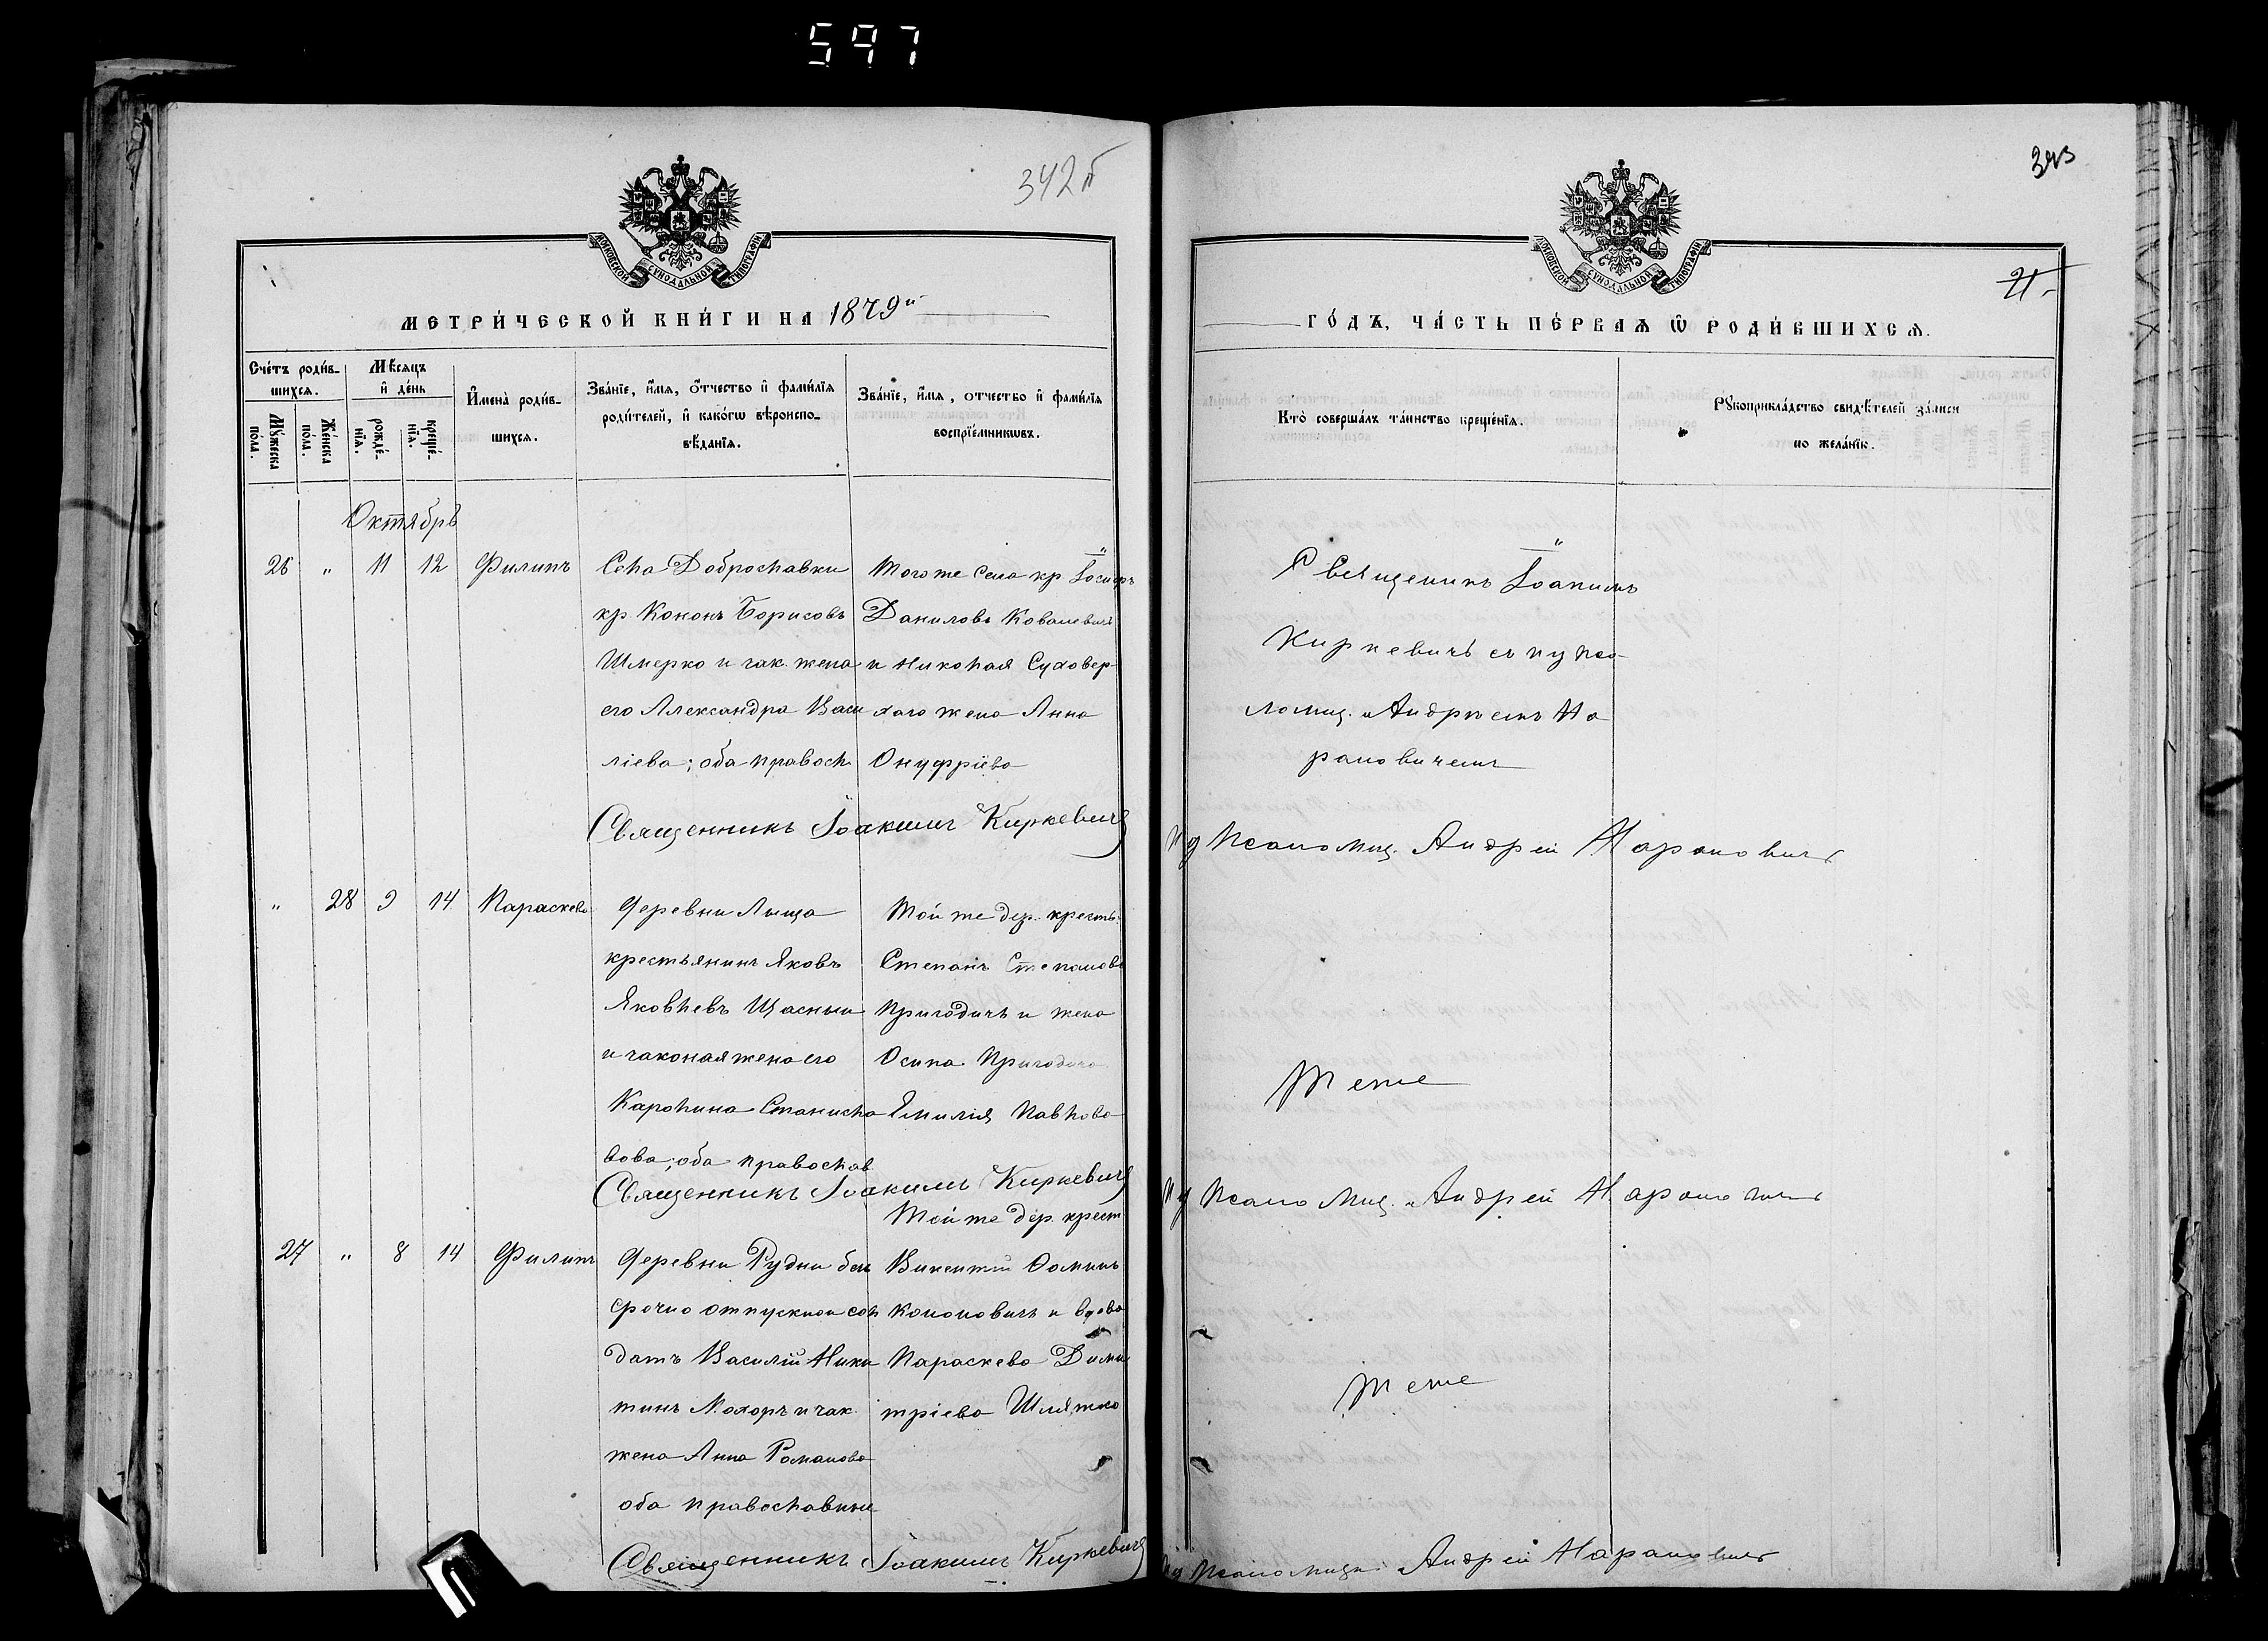 597
342б
343
МОСКОВСКОЙ СѴНОДАЛЬНОЙ ТИПОГРАФІИ
МОСКОВСКОЙ СѴНОДАЛЬНОЙ ТИПОГРАФІИ
21
МЕТРИ́ЧЕСКОЙ КНИ́ГИ НА 1879й
ГО́ДЪ, ЧА́СТЬ ПЕ́РВАѦ Ѿ РОДИ́ВШИХСѦ.
Сче́тъ роди́в-
шихсѧ.
Мѣ́сѧцъ
и҆ де́нь
Мꙋ́жеска
по́ла.
Же́нска
по́ла.
рожде́-
нїѧ.
креще́-
нїѧ.
И҆мена̀ роди́в-
шихсѧ.
Зва́нїе, и҆́мѧ, ѻ҆́тчество и҆ фами́лїѧ
роди́телей, и҆ како́гѡ вѣроиспо-
вѣ́данїѧ.
Зва́нїе, и҆́мѧ, ѻтчество и҆ фами́лїѧ
воспрїе́мникѡвъ.
Кто̀ соверша́лъ та́инство креще́нїѧ.
Рꙋкоприкла́дство свидѣ́телей за́писи
по жела́нїю.
Октябрь
26 „ 11 12 Филипъ
Села Доброславки
кр. Кононъ Борисовъ
Шмерко и зак. жена
его Александра Васи
ліева; оба правосл.
Тогоже села кр. Іосифъ
Даниловъ Ковалевичъ
и Николая Суховер-
хаго жена Анна
Онуфріева
Священникъ Іоакимъ
Киркевичъ съ и д пса-
ломщ. Андреемъ На
рановичемъ
Священникъ Іоакимъ Киркевичъ
и д Псаломщ. Андрей Нарановичъ
„ 28 9 14 Параскева
Деревни Лыща
крестьянинъ Яковъ
Яковлевъ Щасный
и законая жена его
Каролина Станисла
вова; оба православ
Той же дер. крестья
Степанъ Степановъ
Пригодичъ и жена
Осипа Пригодича
Эмилія Павлова
Теже
Священникъ Іоакимъ Киркевичъ
и д Псаломщ. Андрей Нарановичъ
27 „ 8 14 Филипъ
Деревни Рудни без
срочно отпускной сол
датъ Василій Ники
тинъ Мохоръ и зак.
жена Анна Романова
оба православные
Той же дер. крест
Викентій Фоминъ
Кононовичъ и вдова
Параскева Дими
тріева Шляжко
Теже
Священникъ Іоакимъ Киркевичъ
и д Псаломщикъ Андрей Нарановичъ